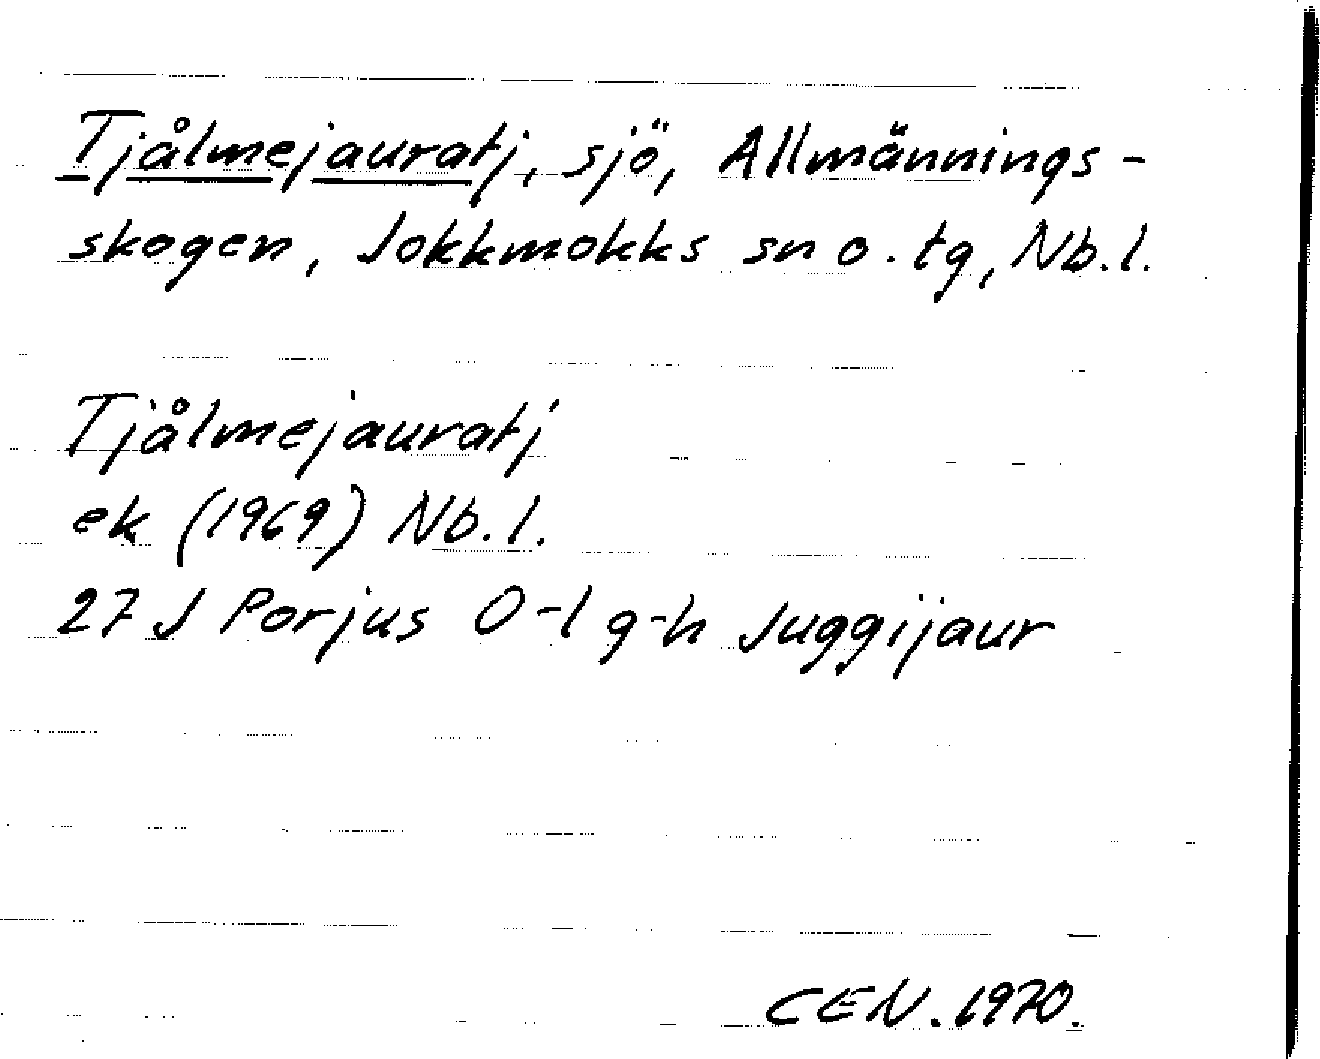 Tjålmejauratj, sjö, Allmännings-
skogen, Jokkmokks sn o. tg, Nb.l.
Tjålmejauratj
ek (1969) Nb.l.
27 J Porjus 0-1 g-h Juggijaur
CEN. 1970.